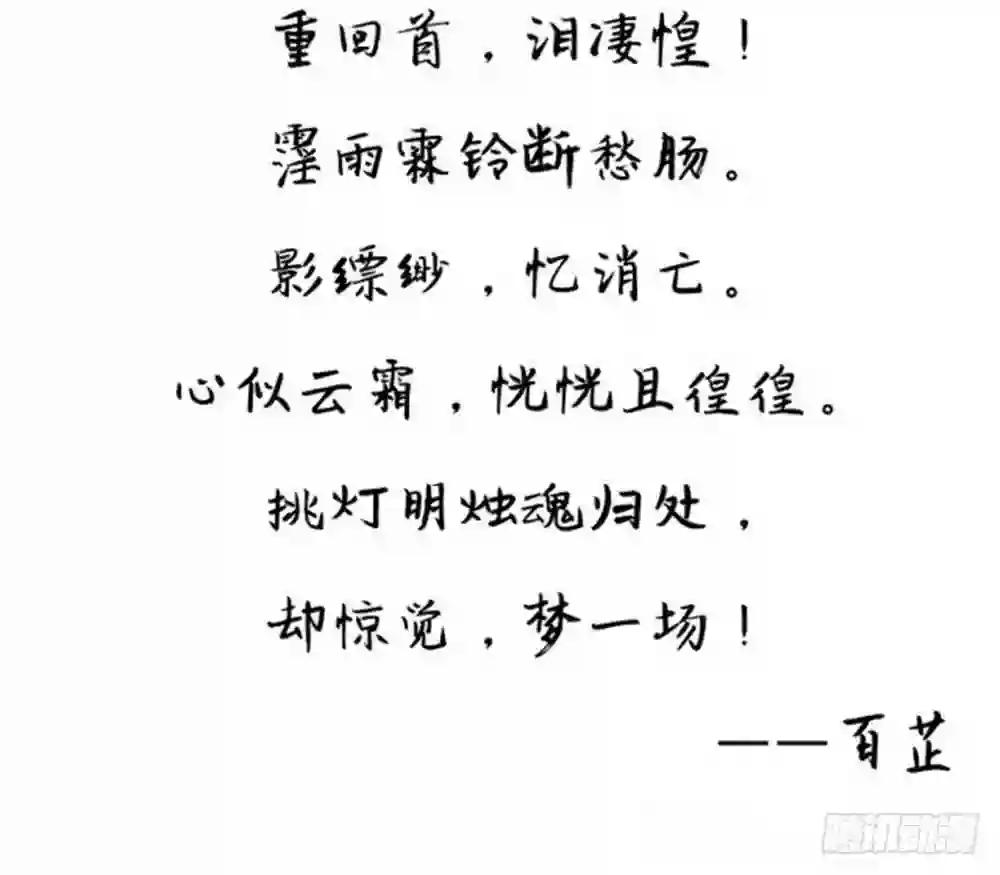 重回首，泪凄惶！
霪雨霖铃断愁肠。
影缥缈，忆消亡。
心似云霜，恍恍且徨徨。
挑灯明烛魂归处，
却惊觉，梦一场！
——百芷
腾讯动漫